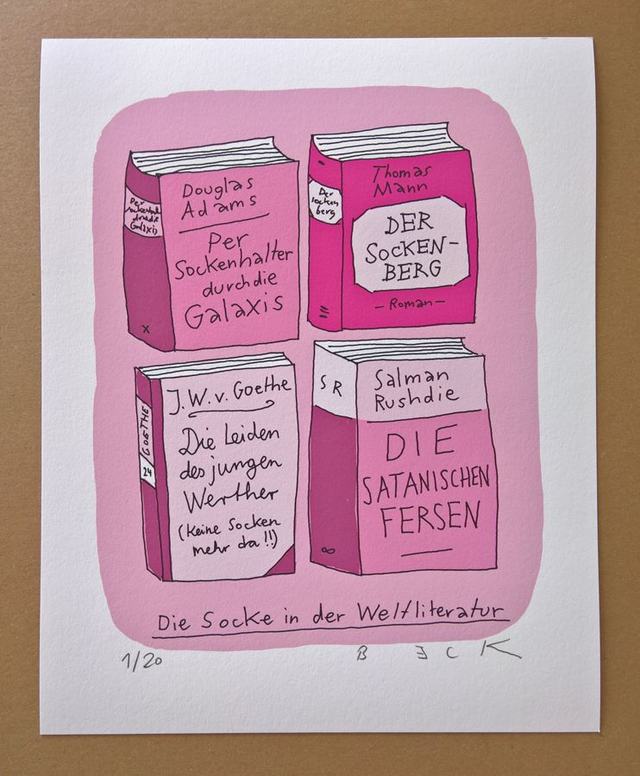 Douglas
Adams
Per
Sockenhalter
durch die
Galaxis
Per
Sockenhalter
durch die
Galaxis
x
Thomas
Mann
DER
SOCKEN-
BERG
- Roman -
Der
Socken
berg
J.W.v. Goethe
Die Leiden
des jungen
Werther
(Keine Socken
mehr da!!)
GOETHE
24
Salman
Rushdie
DIE
SATANISCHEN
FERSEN
S R
∞
Die Socke in der Weltliteratur
1/20
B E C K